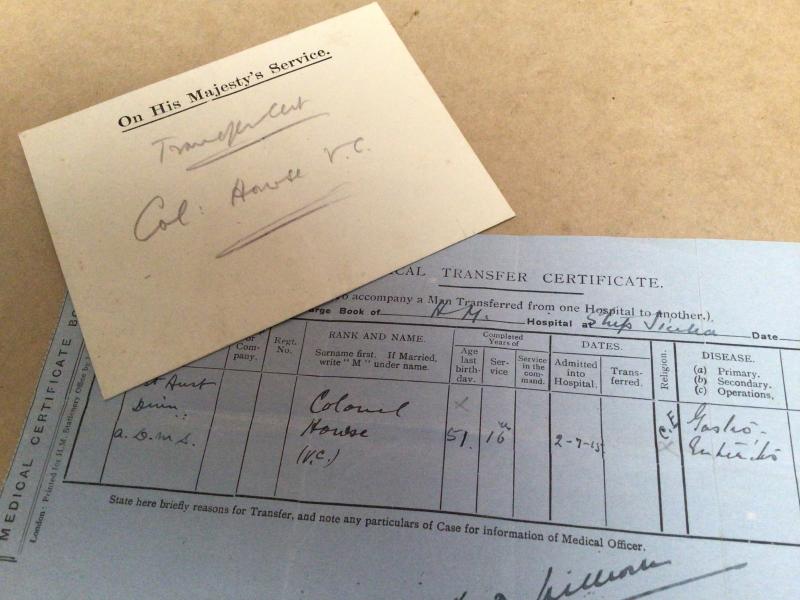 On His Majesty's Service.
Transfer Cert
Col: Howse V.C.
CAL TRANSFER CERTIFICATE.
to accompany a Man Transferred from one Hospital to another.)
arge Book of H.M. Hospital at Ship Sicilia Date
or Com- pany.
Regt. No.
RANK AND NAME.
Surname first. If Married, write "M" under name.
Completed Years of
Age last birth- day.
Ser- vice
Service in the com- mand.
DATES.
Admitted into Hospital.
Trans- ferred.
Religion.
DISEASE.
(a) Primary.
(b) Secondary.
(c) Operations,
st Aust
Divn:
A.D.M.S.
Colonel
Howse
(V.C.)
51.
16
2-7-15
C.E
Gastro-
Enteritis
State here briefly reasons for Transfer, and note any particulars of Case for information of Medical Officer.
MEDICAL CERTIFICATE BO
London: Printed for H.M. Stationery Office by